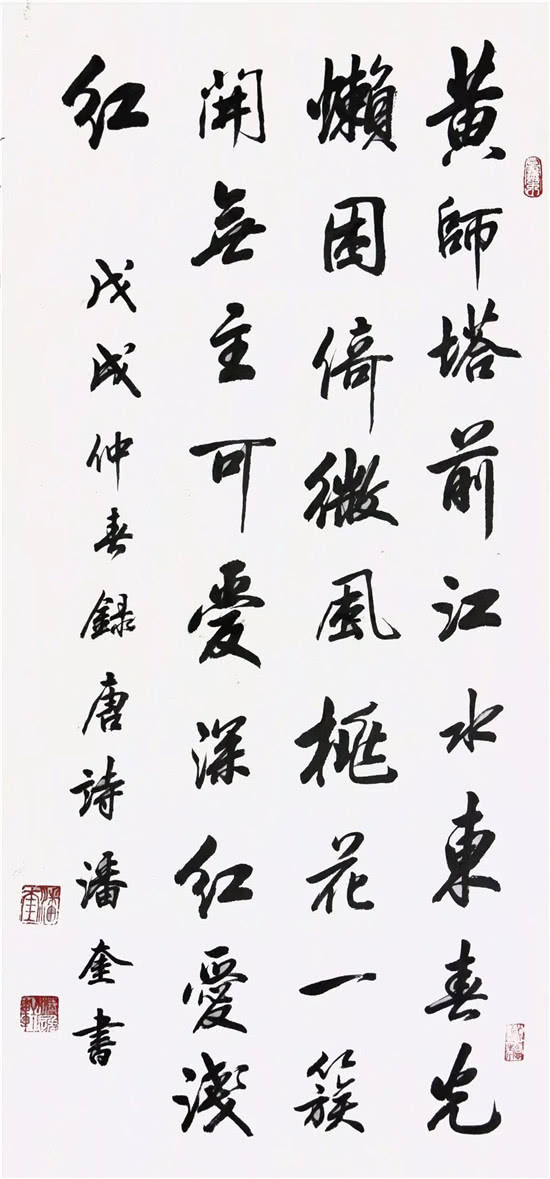 黄師塔前江水東春光
懶困倚微風桃花一簇
開無主可愛深紅愛淺
紅
戊戌仲春錄唐詩潘奎書
潘奎